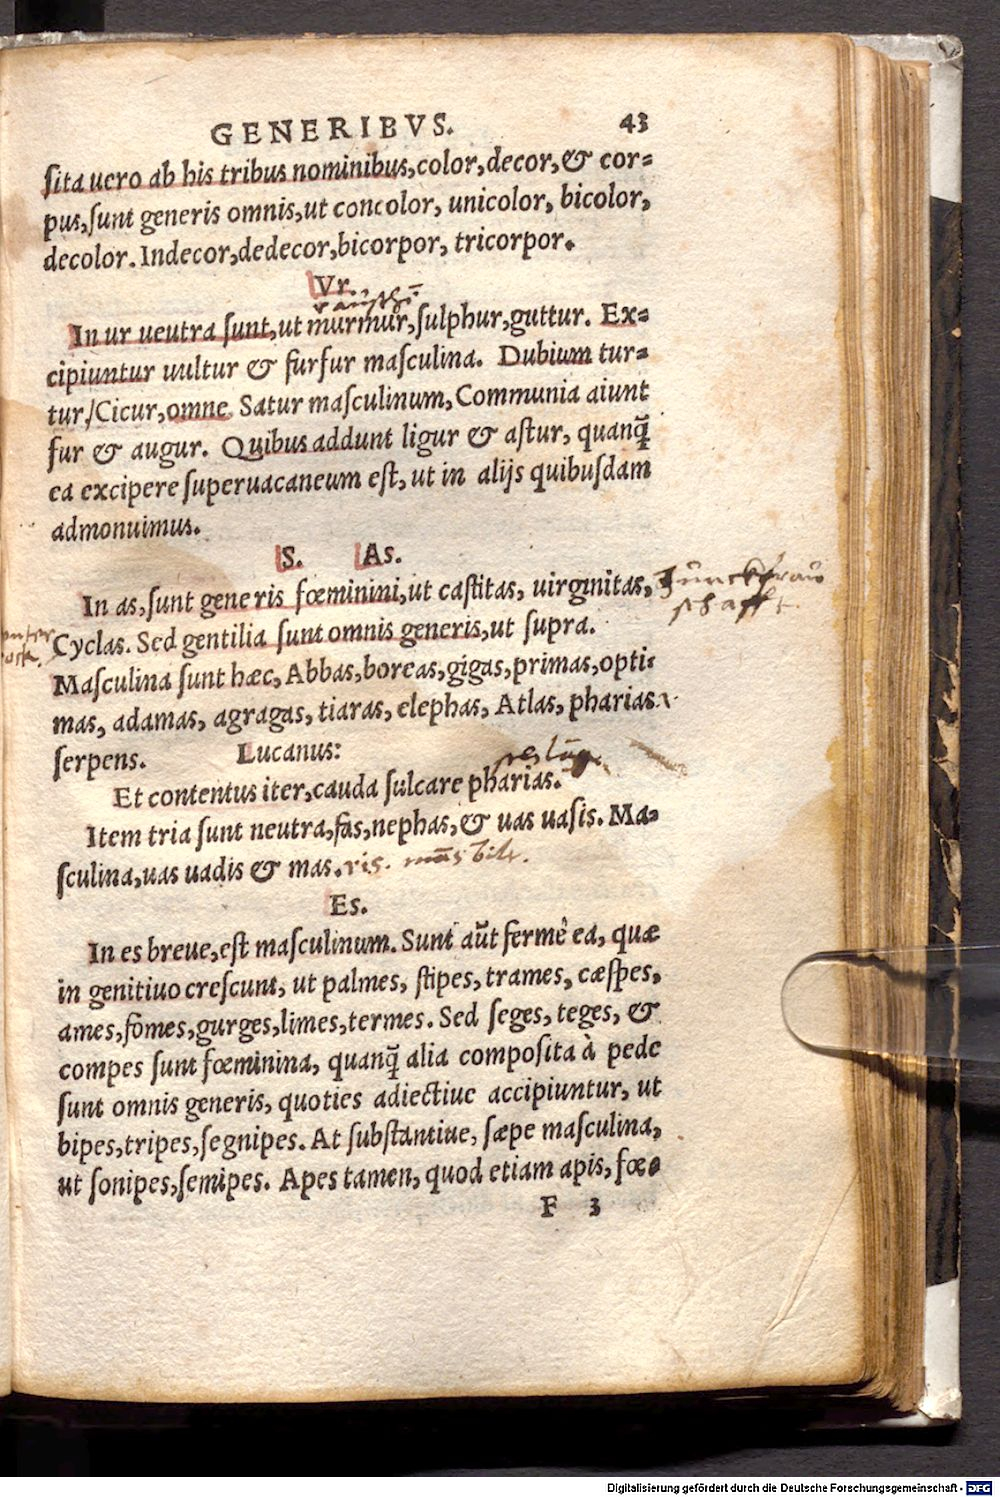 GENERIBVS. 43
ſita uero ab his tribus nominibus,color,decor,& cor=
pus,ſunt generis omnis,ut concolor, unicolor, bicolor,
decolor. Indecor,dedecor,bicorpor, tricorpor.
Vr.
In ur neutra ſunt,ut murmur,ſulphur,guttur. Ex=
cipiuntur uultur & furfur maſculina. Dubium tur=
tur,/Cicur,omne. Satur maſculinum,Communia aiunt
fur & augur. Quibus addunt ligur & aſtur, quanq̃
ea excipere ſuperuacaneum eſt,ut in alijs quibuſdam
admonuimus.
S. As.
In as,ſunt generis fœminini,ut caſtitas, uirginitas, Junckfraw
ſchafft.
Cyclas. Sed gentilia ſunt omnis generis,ut ſupra.
Maſculina ſunt hæc, Abbas,boreas,gigas,primas,opti=
mas, adamas, agragas, tiaras, elephas, Atlas, pharias
ſerpens. Lucanus:
Et contentus iter,cauda ſulcare pharias.
Item tria ſunt neutra,fas,nephas,& uas uaſis. Ma=
ſculina,uas uadis & mas.ris.
Es.
In es breue,eſt maſculinum. Sunt aũt fermè ea, quæ
in genitiuo creſcunt, ut palmes, ſtipes, trames, cæſpes,
ames,fomes,gurges,limes,termes. Sed ſeges, teges, &
compes ſunt fœminina, quanq̃ alia compoſita à pede
ſunt omnis generis, quoties adiectiue accipiuntur, ut
bipes,tripes,ſegnipes. At ſubſtantiue, ſæpe maſculina,
ut ſonipes,ſemipes. Apes tamen, quod etiam apis, fœ=
F 3
Digitalisierung gefördert durch die Deutsche Forschungsgemeinschaft - DFG